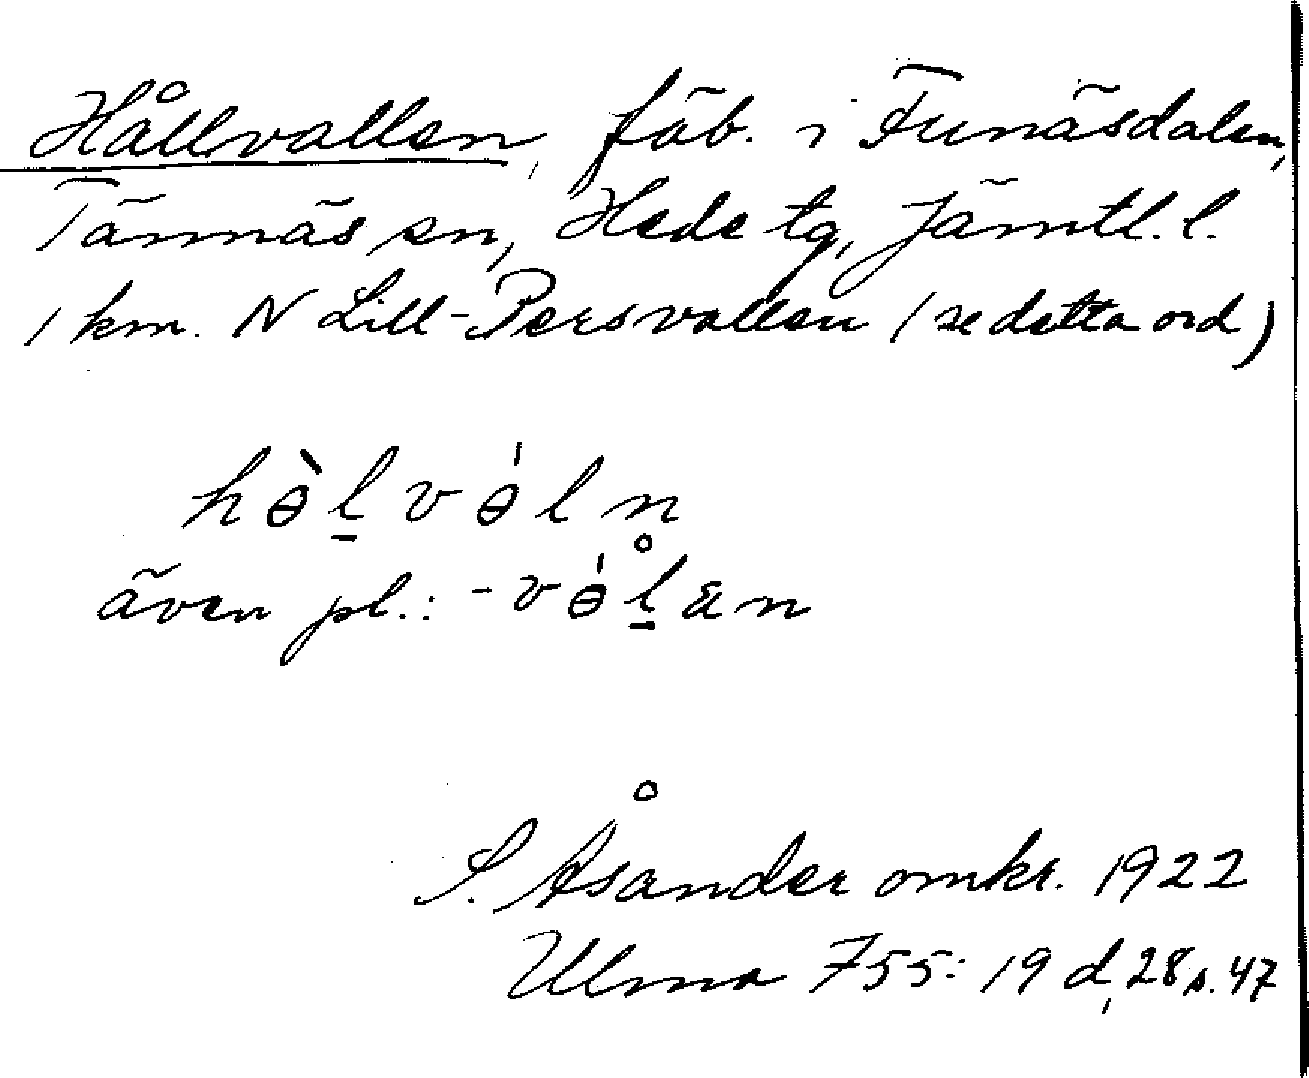 Hållvallen, fäb. i Funäsdalen,
Tännäs sn, Hede tg, Jämtl. l.
1 km. N Lill-Persvallen (se detta ord)
hɵ̀l̠vɵ́ln̥
även pl.: -vɵ́l̠an
S. Åsander omkr. 1922
Ulma 755: 19 d, 28 s. 47